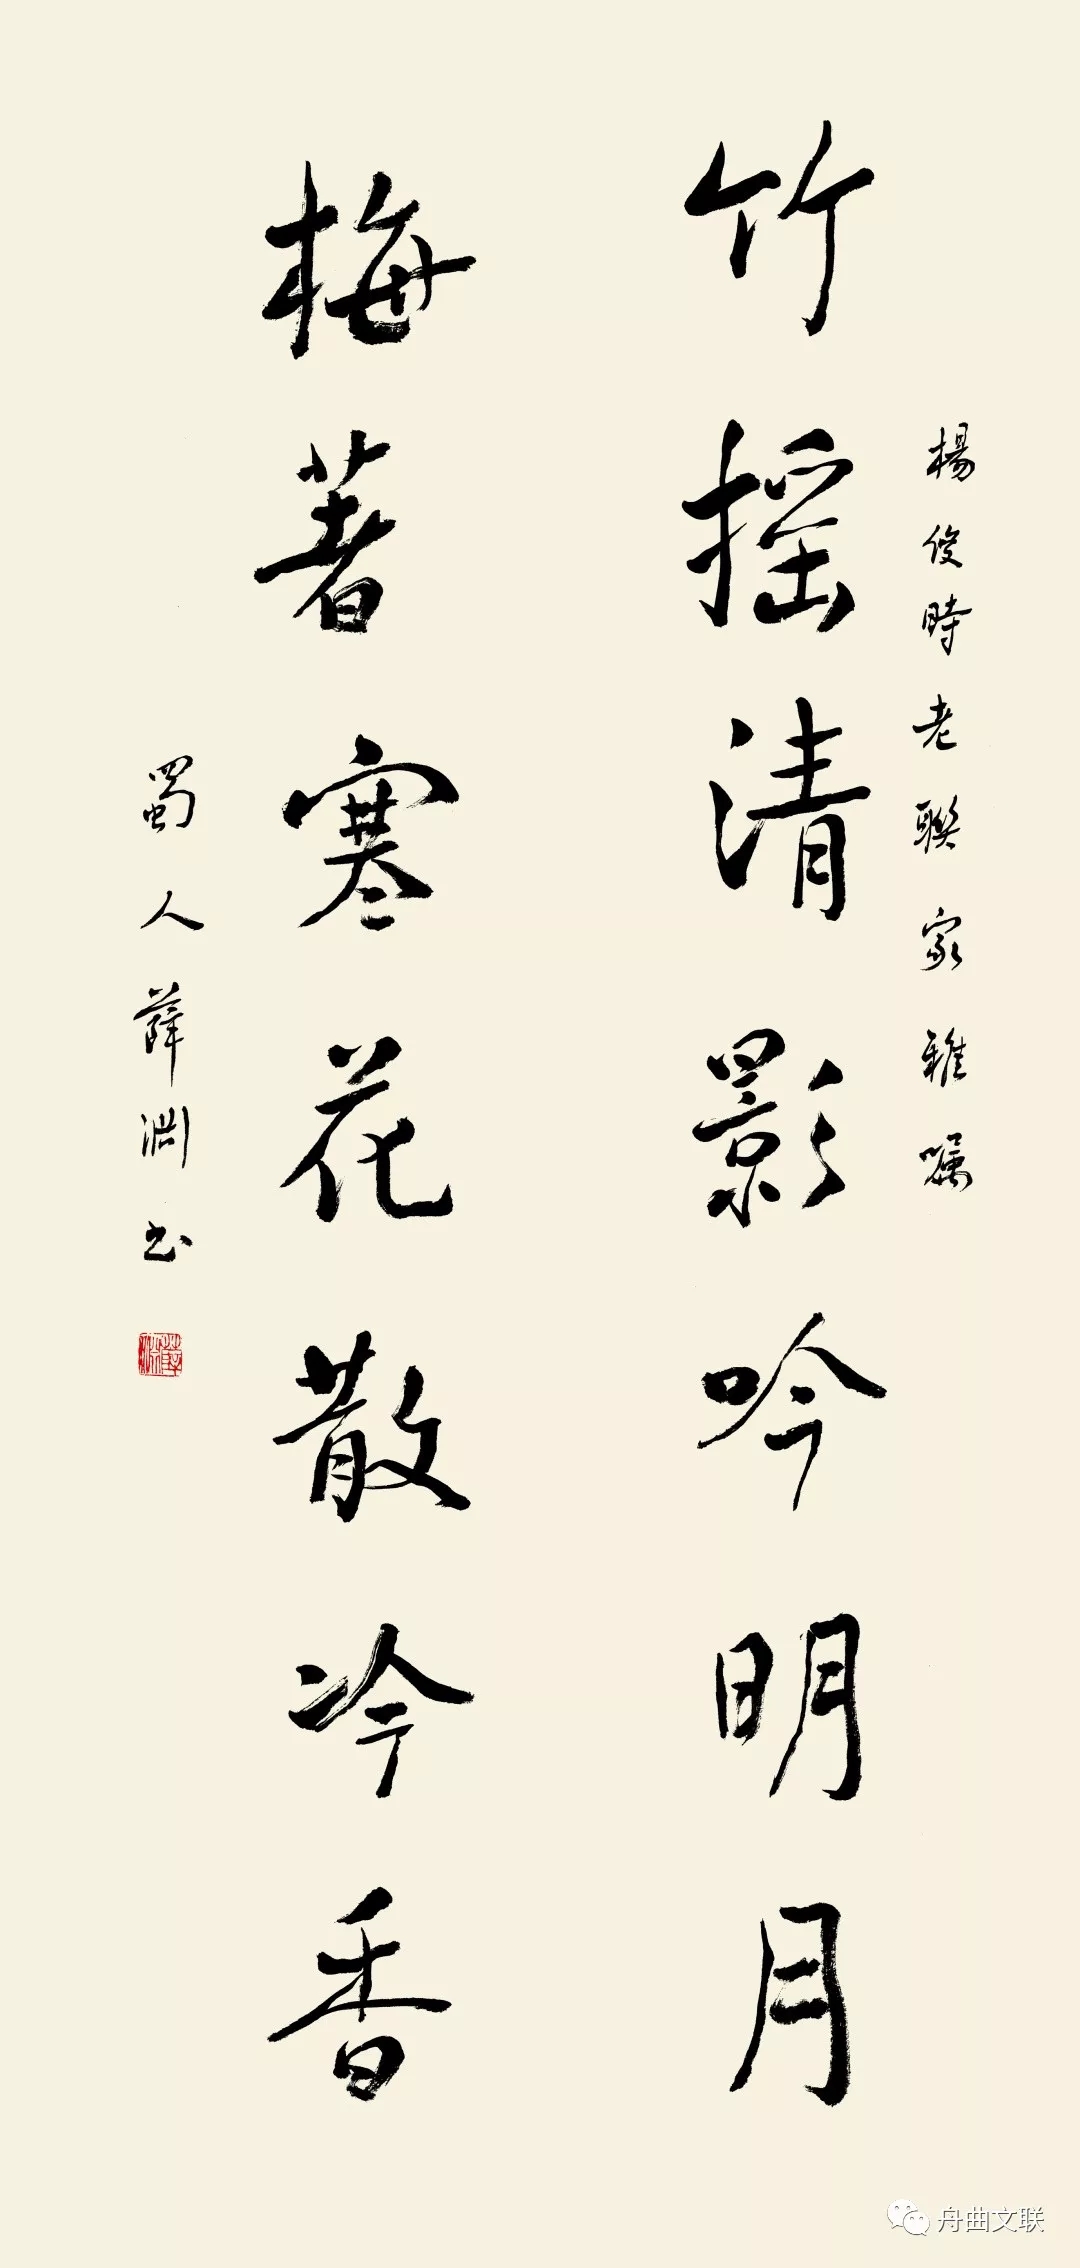 楊俊時老聯家雅嘱
竹摇清影吟明月
梅著寒花散冷香
蜀人薛渊书
薛渊
舟曲文联